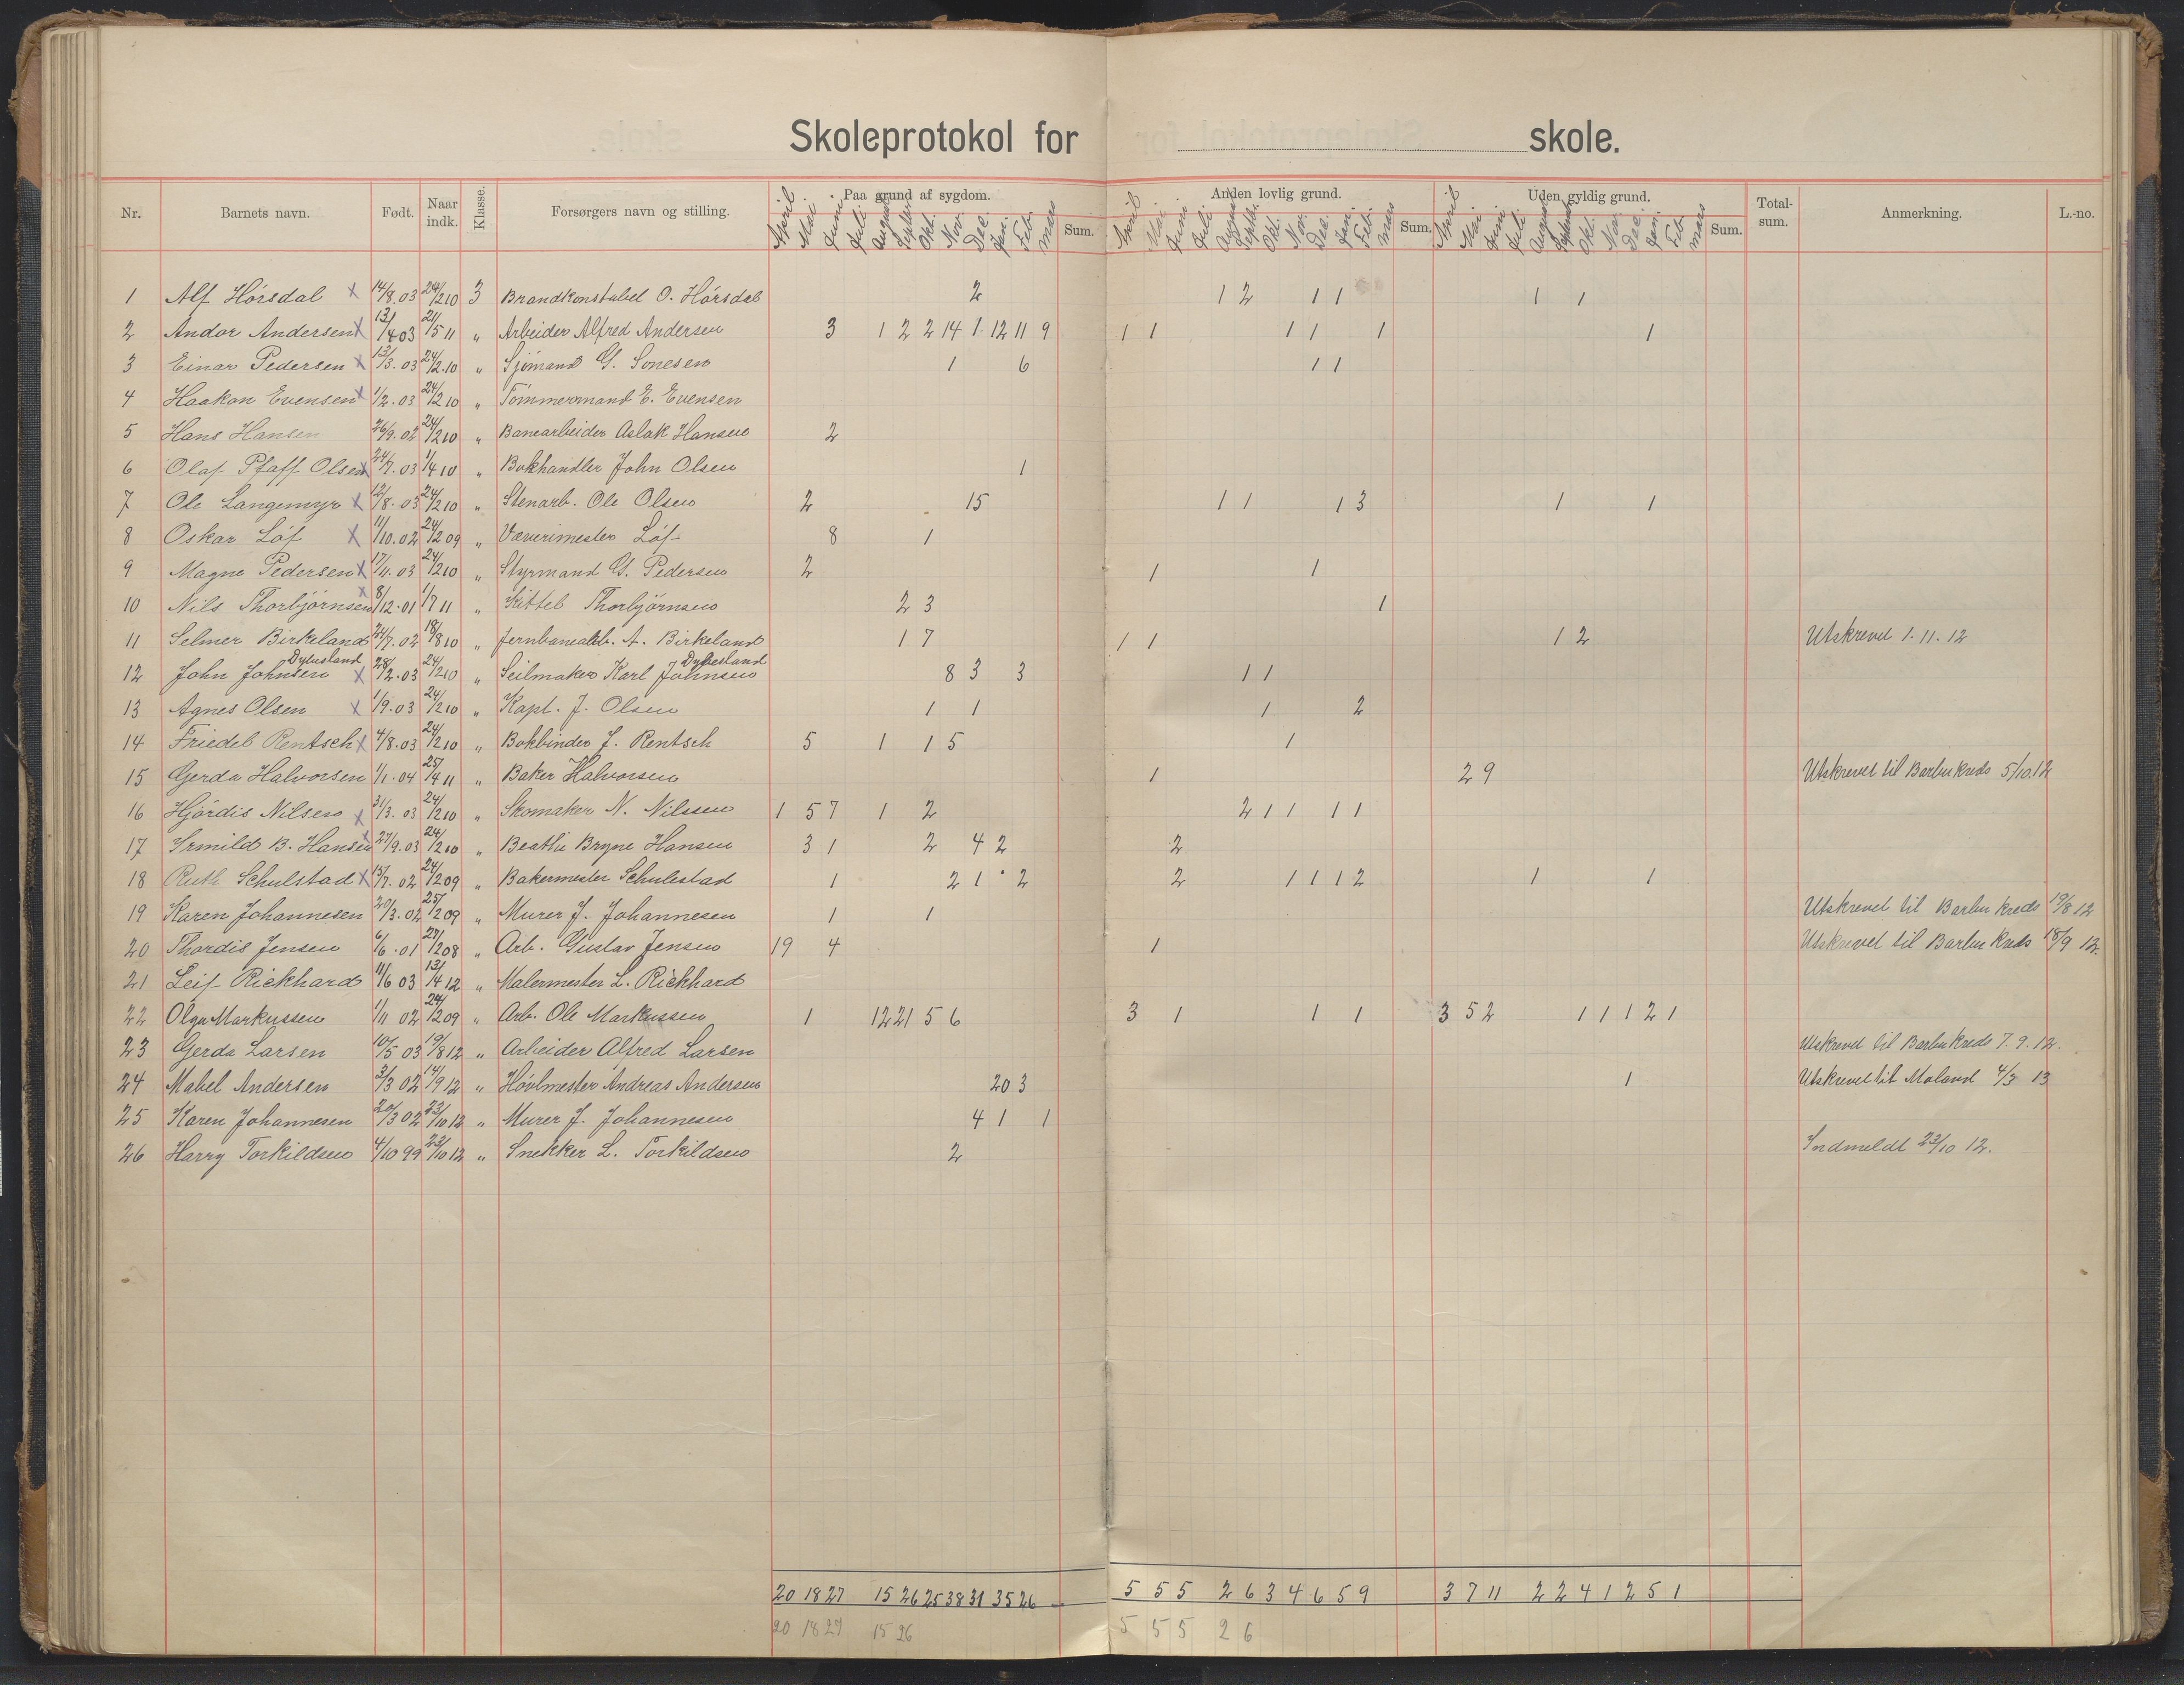 Skoleprotokol for skole.
Nr. Barnets navn. Født. Naar indk. Klasse. Forsørgers navn og stilling. Paa grund af sygdom. Anden lovlig grund. Uden gyldig grund. Total-sum. Anmerkning. L.-no.
April Mai Juni Juli August Septbr Okt. Nov. Dec. Jan. Feb. mars Sum. April Mai Juni Juli August Septbr. Okt. Nov. Dec. Jan. Feb. mars Sum. April Mai Juni Juli August Septbr Okt. Nov. Dec. Jan. Feb. mars Sum.
1 Alf Hörsdal x 14/8.03 24/2 10 3 Brandkonstabel O. Hörsdal 2 1 2 1 1 1 1
2 Andor Andersen x 13/4 03 21/5 11 " Arbeider Alfred Andersen 3 1 2 2 14 1 12 11 9 1 1 1 1 1 1
3 Einar Pedersen x 13/3.03 24/2.10 " Sjömand G. Sonesen 1 6 1 1
4 Haakon Evensen x 1/2.03 24/2 10 " Tömmermand E. Evensen
5 Hans Hansen 26/9.02 24/2 10 " Banearbeider Aslak Hansen 2
6 Olaf Pfaff Olsen x 24/7.03 1/4 10 " Bokhandler John Olsen 1
7 Ole Langemyr x 12/8.03 24/2 10 " Stenarb. Ole Olsen 2 15 1 1 1 3 1 1
8 Oskar Löf x 11/10.02 24/2 09 " Værerimester Löf 8 1
9 Magne Pedersen x 17/11.03 24/2 10 " Styrmand G. Pedersen 2 1 1
10 Nils Thorbjörnsen x 8/12.01 1/7 11 " Kittel Thorbjörnsen 2 3 1
11 Selmer Birkeland 24/7.02 18/8 10 " Jernbanearb. A. Birkeland 1 7 1 1 1 2 Utskrevet 1.11.12
Dybesland Dybesland
12 John Johnsen x 28/2.03 24/2 10 " Seilmaker Karl Johnsen 8 3 3 1 1
13 Agnes Olsen x 1/9.03 24/2 10 " Kapt. J. Olsen 1 1 1 2
14 Friedel Rentsch x 4/8.03 24/2 10 " Bokbinder J. Rentsch 5 1 1 5 1
15 Gerda Halvorsen 1/1.04 25/4 11 " Baker Halvorsen 1 2 9 Utskrevet til Barbu kreds 5/10.12
16 Hjördis Nilsen x 31/3.03 24/2 10 " Skomaker N. Nilssen 1 5 7 1 2 2 1 1 1 1
17 Irmild B. Hansen x 27/9.03 24/2 10 " Beathe Bryne Hansen 3 1 2 4 2 2
18 Ruth Schulstad x 15/7.02 24/2 09 " Bakermester Schulestad 1 2 1 2 2 1 1 1 2 1 1
19 Karen Johannesen 20/3.02 25/2 09 " Murer J. Johannesen 1 1 Utskrevet til Barbu kreds 19/8 12
20 Thordis Jensen 6/6.01 27/2 08 " Arb. Gustav Jensen 19 4 1 Utskrevet til Barbu kreds 18/9 12.
21 Leif Rickhard 11/6 03 13/4 12 " Malermester L. Rickhard
22 Olga Markussen 1/11 02 24/2 09 " Arb. Ole Markussen 1 12 21 5 6 3 1 1 1 3 5 2 1 1 1 2 1
23 Gerda Larsen 10/5 03 19/8 12 " Arbeider Alfred Larsen Utskrevet til Barbu kreds 7.9.12.
24 Mabel Andersen 3/3 02 14/9 12 " Hövlmester Andreas Andersen 20 3 1 Utskrevet til Moland 4/3 13
25 Karen Johannesen 20/3 02 23/10 12 " Murer J. Johannesen 4 1 1
26 Harry Torkildsen 4/10 99 23/10 12 " Snekker L. Torkildsen 2 Indmeldt 23/10 12.
20 18 27 15 26 25 38 31 35 26 5 5 5 2 6 3 4 6 5 9 3 7 11 2 2 4 1 2 5 1
20 18 27 15 26 5 5 5 2 6